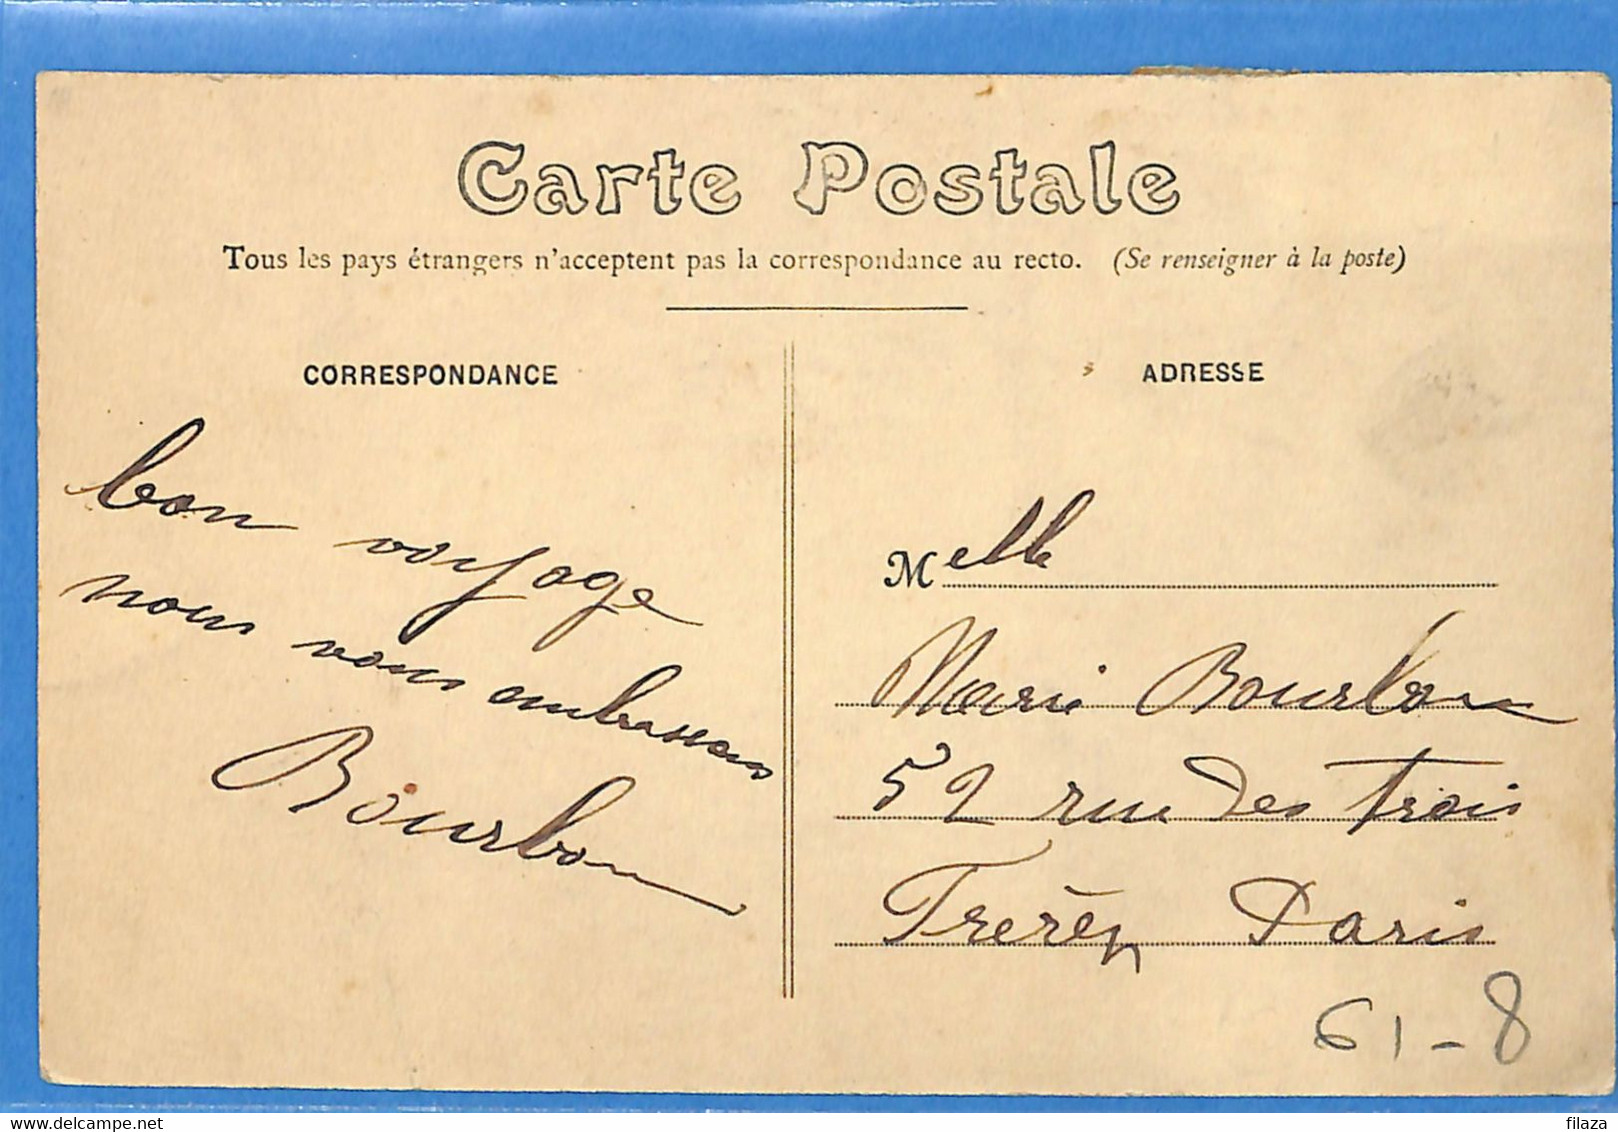 Carte Postale
Tous les pays étrangers n'acceptent pas la correspondance au recto. (Se renseigner à la poste)
CORRESPONDANCE
bon voyage
nous vous embassons
Bourbon
ADRESSE
Melle
Marie Bourbon
52 rue des trois
Frerès Paris
61-8
filaza